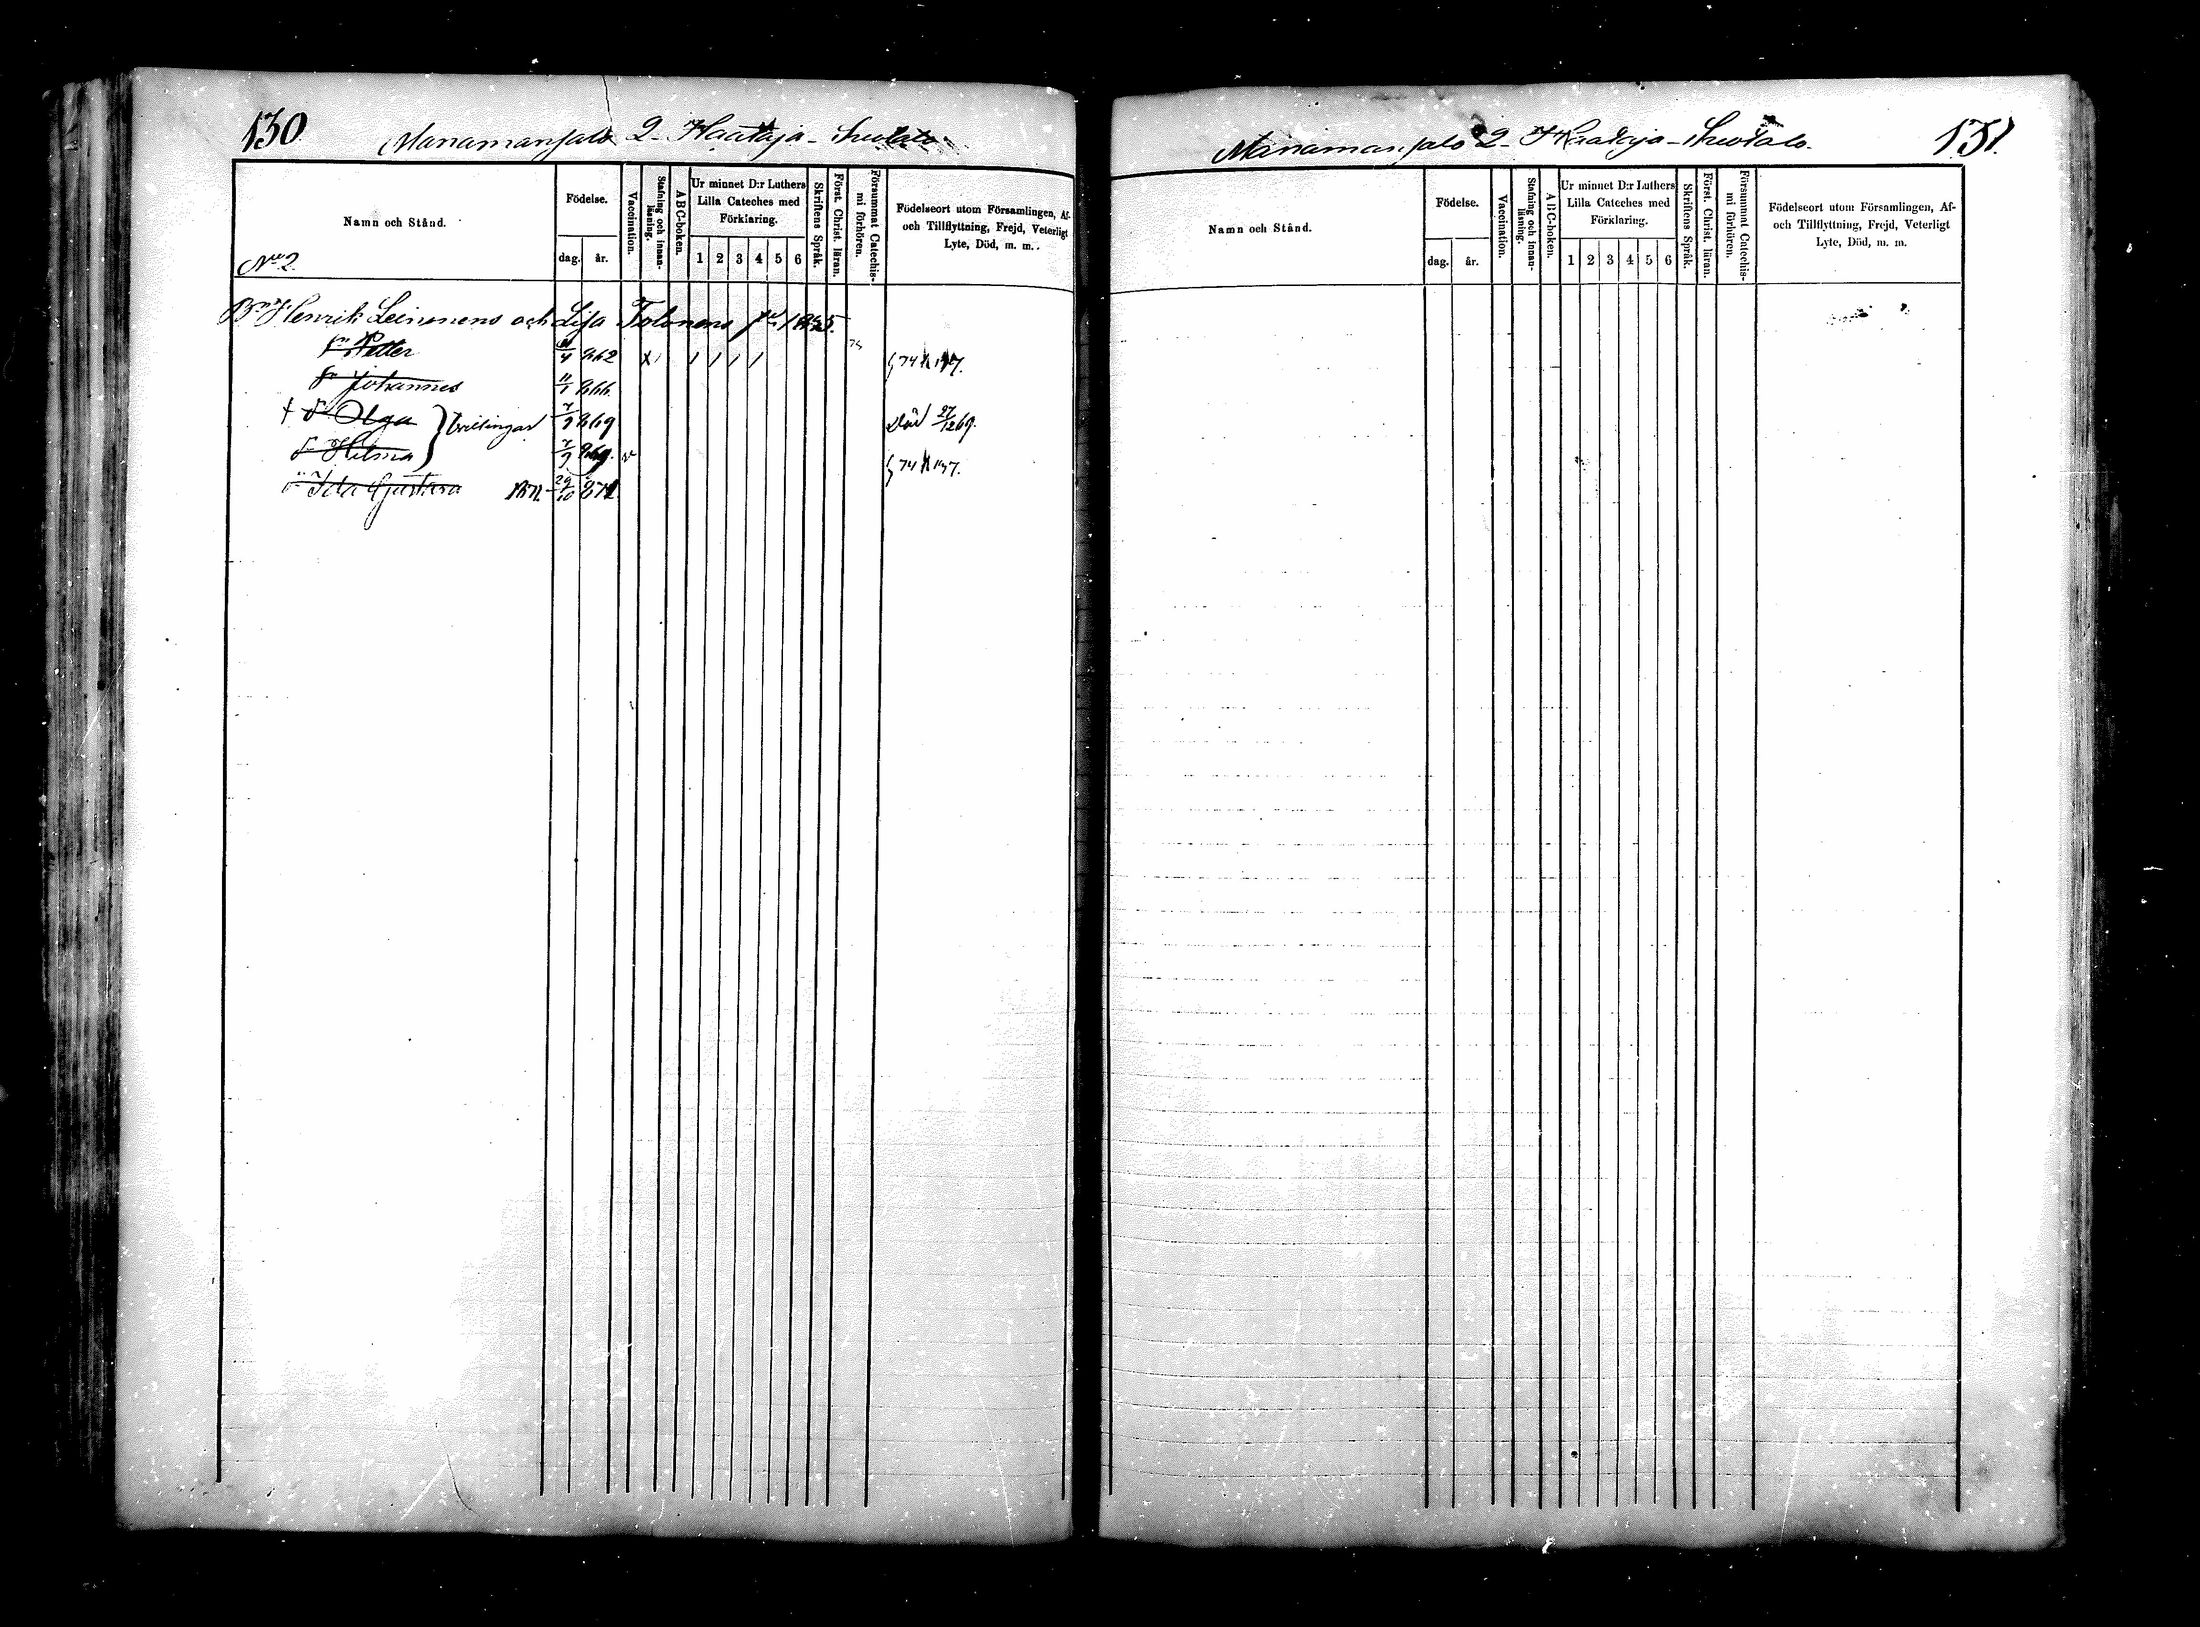 130
Manamansalo 2. Haataja-
Namn och Stånd.
No 2.
Födelse.
dag. år.
Vaccination.
Stafning och innan-läsning.
ABC-boken.
Ur minnet D:r Luthers
Lilla Cateches med
Förklaring.
1 2 3 4 5 6
Skriftens Språk.
Först. Christ. läran.
Försummat Catechis-mi förhören.
Födelseort utom Församlingen, Af-
och Tillflyttning, Frejd, Veterligt
Lyte, Död, m. m.
Henrik Leinonens och Lisa Tolonens
Petter 862
Johannes 11/1 866
† d. Olga 7/9 869 Död 27/12 69.
Tvillingar
d. Hilma 7/9 869. v
Ida Gustava 29/10
Manamansalo 2. Haataja-
131.
Namn och Stånd.
Födelse.
dag. år.
Vaccination.
Stafning och innan-läsning.
ABC-boken.
Ur minnet D:r Luthers
Lilla Cateches med
Förklaring.
1 2 3 4 5 6
Skriftens Språk.
Först. Christ. läran.
Försummat Catechis-mi förhören.
Födelseort utom Församlingen, Af-
och Tillflyttning, Frejd, Veterligt
Lyte, Död, m. m.